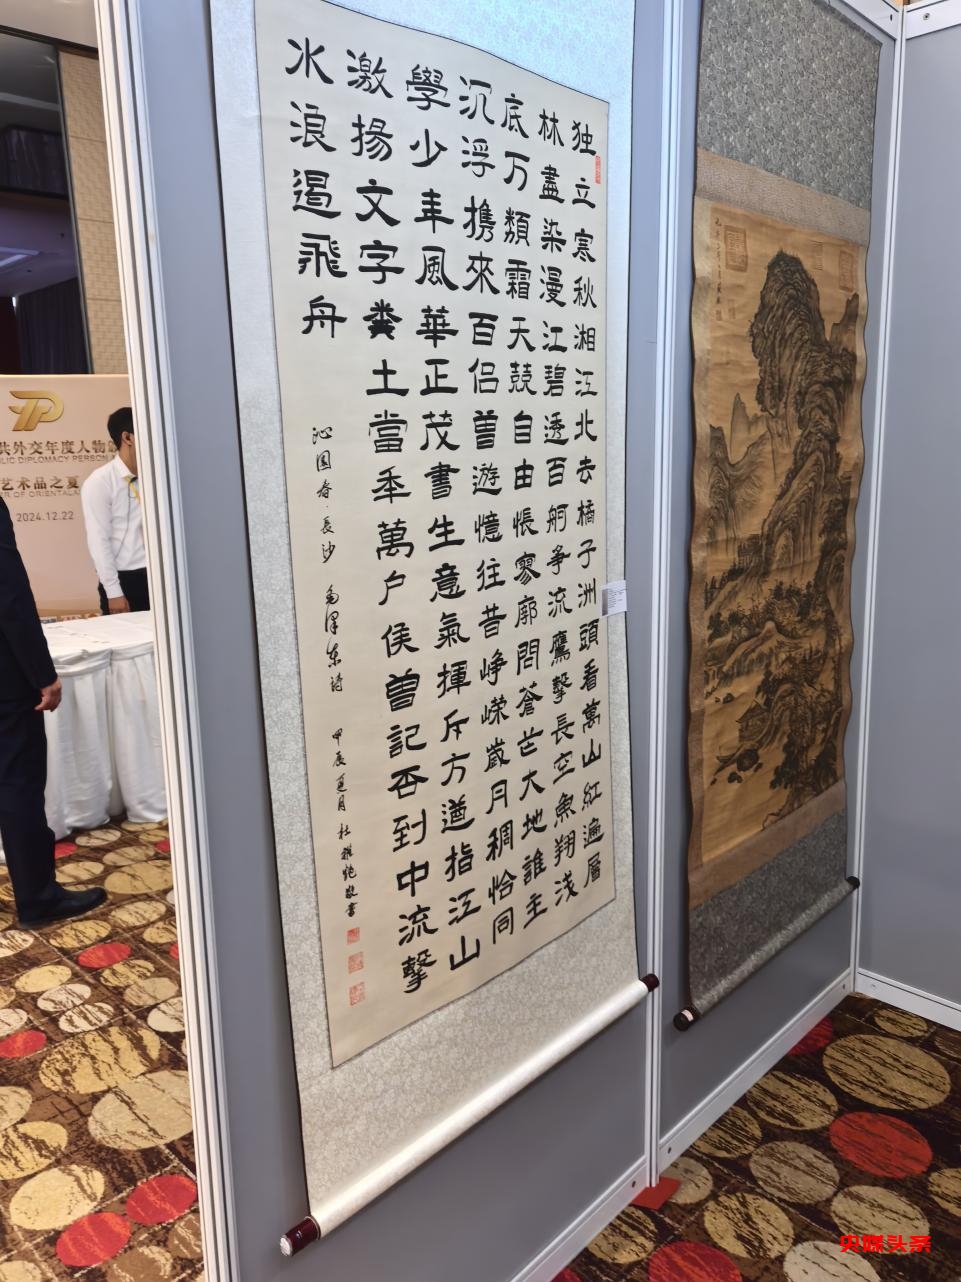 独立寒秋湘江北去橘子洲頭看萬山紅遍層
林盡染漫江碧透百舸争流鷹擊長空魚翔淺
底万類霜天競自由悵寥廓問蒼茫大地誰主
沉浮攜來百侣曾遊憶往昔峥嵘歲月稠恰同
學少年風華正茂書生意氣揮斥方遒指江山
激揚文字糞土當年萬户侯曾記否到中流擊
水浪遏飛舟
沁園春·長沙 毛澤东詩 甲辰夏月杜雅
共外交年度人物
LIC DIPLOMACY PERSON
艺术品之夏
R OF ORIENTAL
2024.12.22
央媒头条